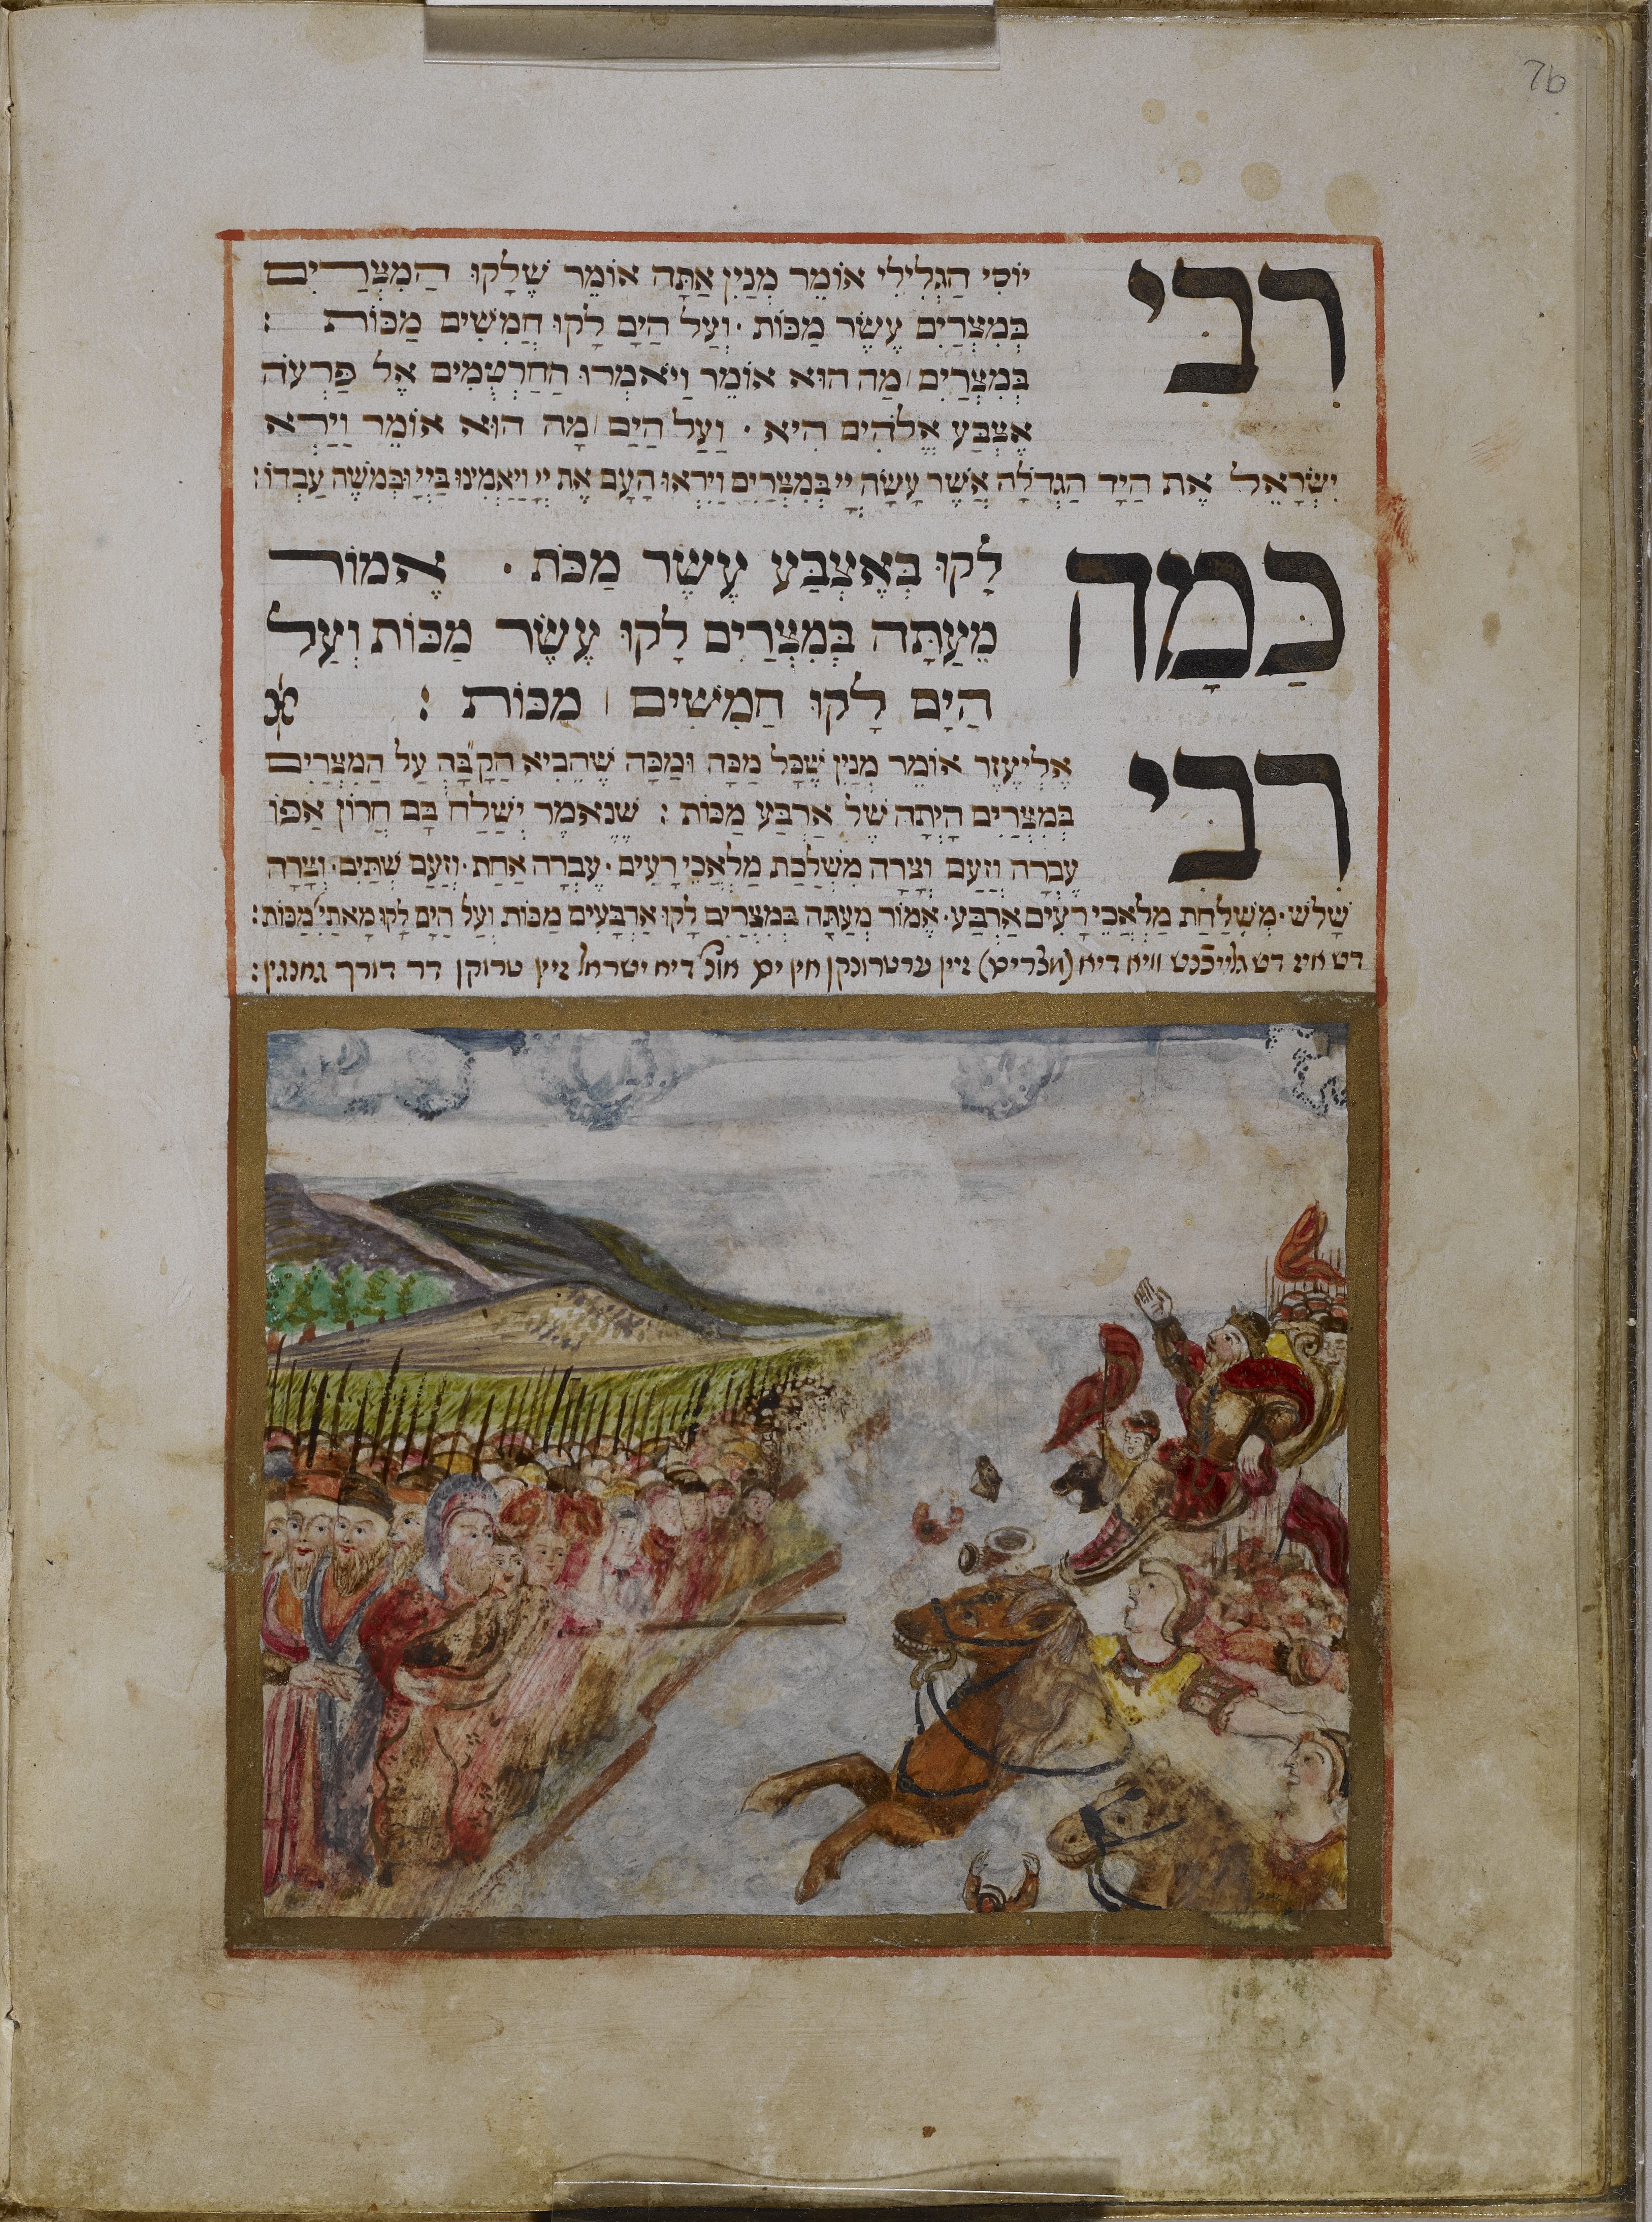 7b
רִבִּי יוֹסֵי הַגְּלִילִי אוֹמֵר מִנַיִן אַתָּה אוֹמֵר שֶׁלָקוּ הַמִצְרַיִם
בְּמִצְרַיִם עֶשֶׂר מַכּוֹת · וְעַל הַיָם לָקוּ חֲמִשִׁים מַכּוֹת :
בְּמִצְרַיִם מַה הוּא אוֹמֵר וַיֹאמְרוּ הַחַרְטֻמִים אֶל פַּרְעֹה
אֶצְבַּע אֱלֹהִים הִיא · וְעַל הַיַם מָה הוּא אוֹמֵר וַיַרְא
יִשְׂרָאֵל אֶת הַיָד הַגְדֹלָה אֲשֶׁר עָשָׂה יְיָ בְּמִצְרַיִם וַיִרְאוּ הָעָם אֶת יְיָ וַיַאֲמִינוּ בַּיְיָ וּבְּמֹשֶׁה עַבְדוֹ :
כַּמָה לָקוּ בְּאֶצְבַּע עֶשֶׂר מַכֹּת · אֱמוֹר
מֵעַתָּה בְּמִצְרַיִם לָקוּ עֶשֶׂר מַכּוֹת וְעַל
הַיָם לָקוּ חֲמִשִׁים מַכּוֹת :
רִבִּי אֱלִיעֶזֶר אוֹמֵר מִנַיִן שֶׁכָּל מַכָּה וּמַכָּה שֶׁהֵבִיא הַקָבָּ״ה עַל הַמִצְרַיִם
בְּמִצְרַיִם הָיְתָה שֶׁל אַרְבַּע מַכּוֹת : שֶׁנֶאֱמֶר יְשַׁלַח בָּם חֲרוֹן אַפּוֹ
עֶבְרָה וָזַעַם וְצָרָה מִשְׁלַחַת מַלְאֲכֵי רָעִים · עֶבְרָה אַחַת · וָזַעַם שְׁתַּיִם · וְצָרָה
שָׁלֹשׁ · מִשְׁלַחַת מַלְאֲכֵי רָעִים אַרְבַּע · אֱמוֹר מֵעַתָּה בְּמִצְרַיִם לָקוּ אַרְבָּעִים מַכּוֹת וְעַל הַיָם לָקוּ מָאתַיִם מַכּוֹת :
דש איז דש גלייכֿנש וויא דיא (מצרים) זיין ערטרונקן אין ים אונ' דיא ישראל זיין טרוקן דר דורך גאנגין :